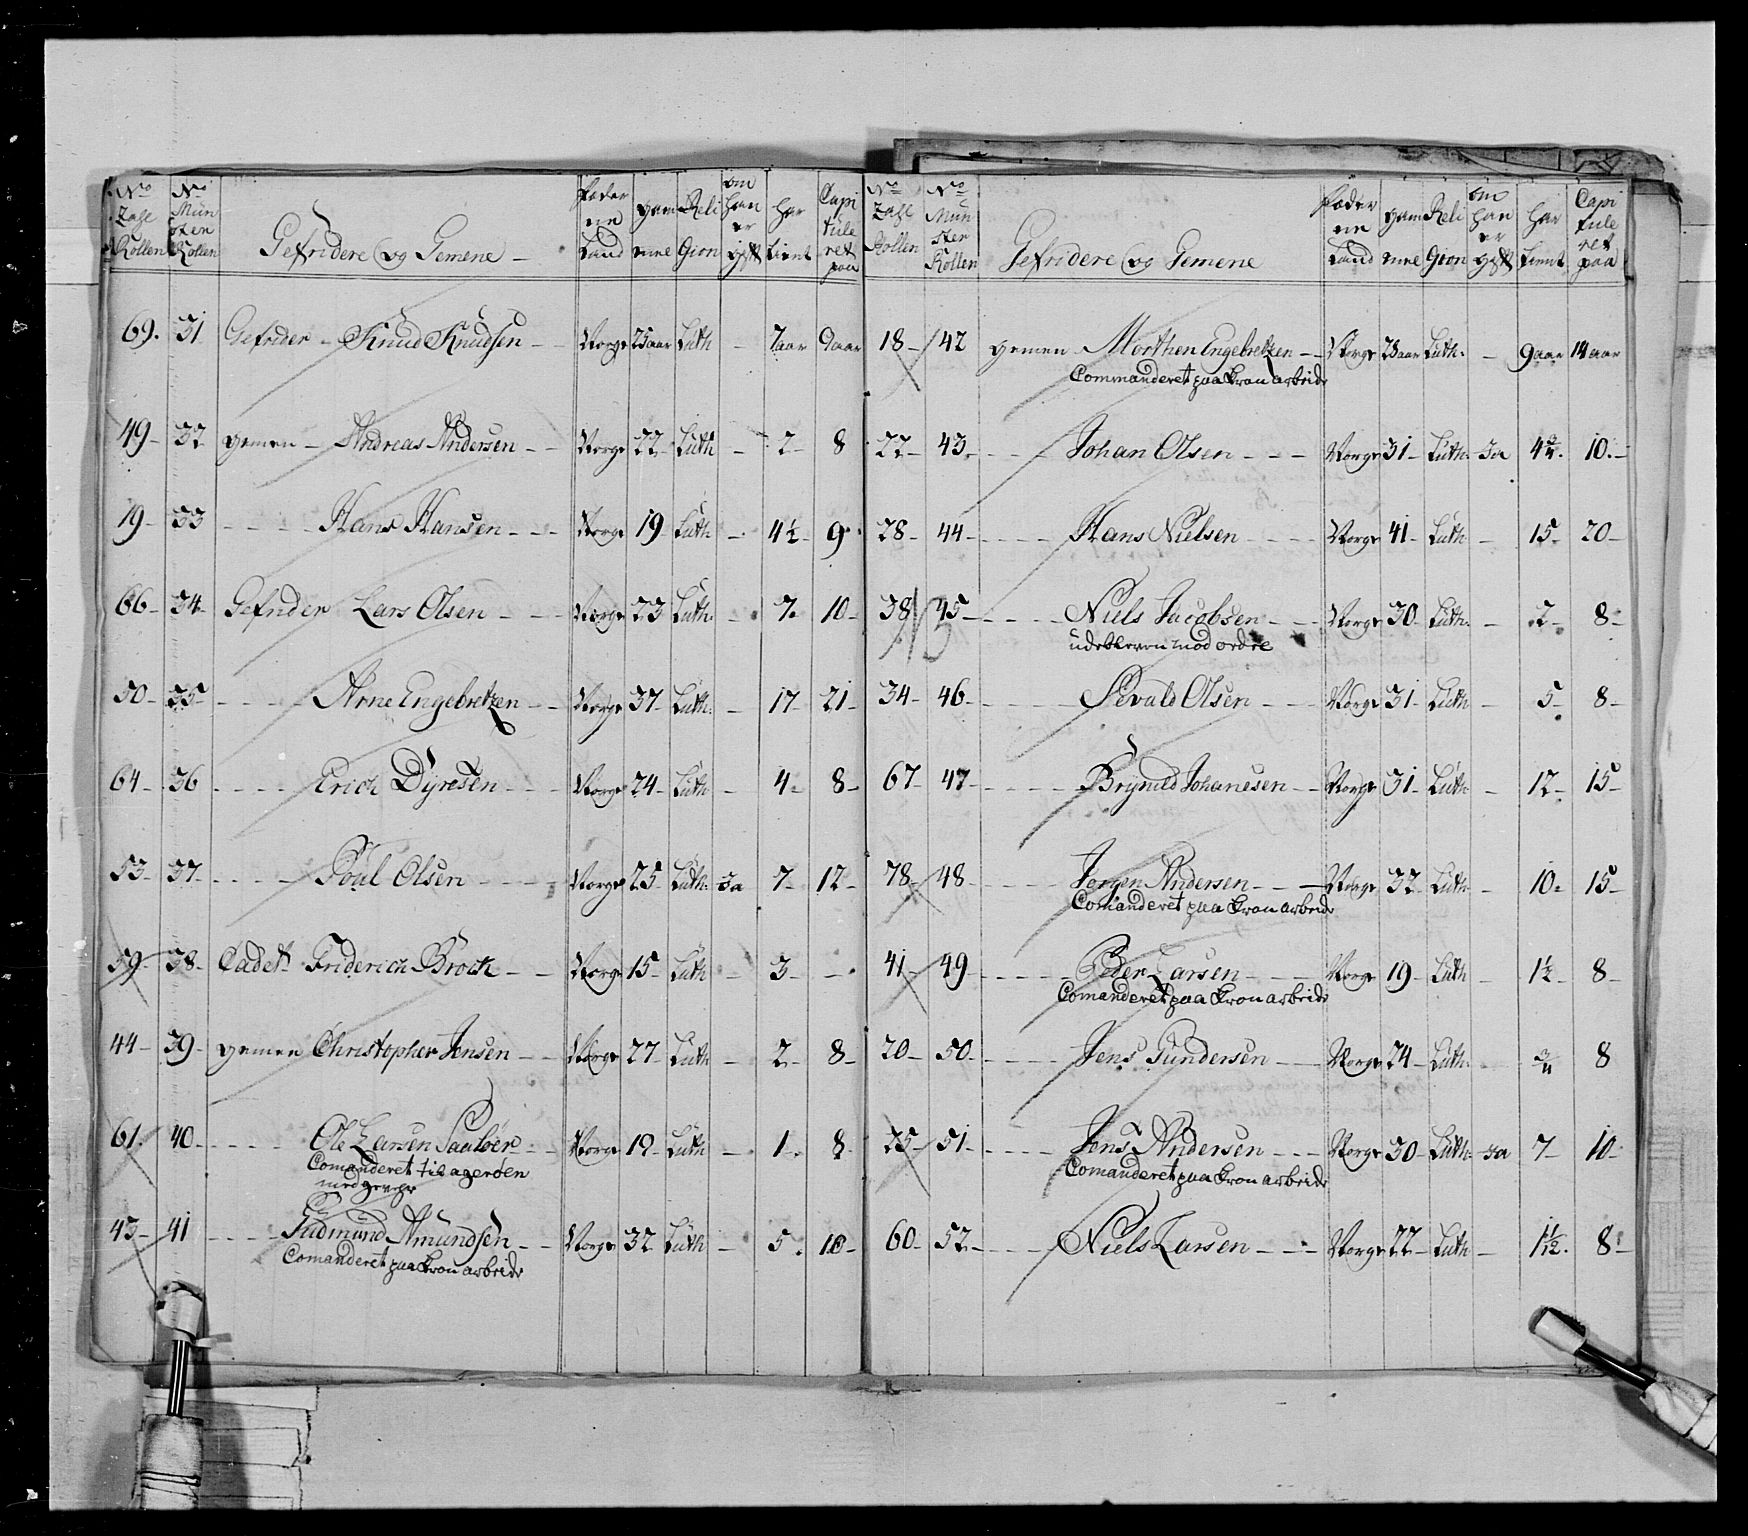 No Zahl Rollen | No Mün ster Rollen | Gefridere og Gemene – | Føder ne Land | gam mel | Reli Gion | om han er gift | har tient | Capi tule ret paa
69. 31 Gefrider – Knud Knudsen – – Norge 25 aar Luth – 7 aar 9 aar
49 – 32 gemen – Andreas Andersen – – Norge 22 – Luth – 2 – 8
19 – 33 – – – – Hans Hansen – – – Norge 19 – Luth – 4½ – 9
66 – 34 – Gefrider Lars Olsen – – – Norge 23 Luth. – 7 – 10 –
50 – 35 – – – – – Arne Engebretzen – – Norge 37 – Luth. – 17 – 21 –
64 – 36 – – – – Erich Dyresen – – – Norge 24 – Luth – 4 – 8 –
53 – 37 – – – – – Poul Olsen – – – – Norge 25 – Luth. Ja 7 – 12 –
59 – 38 – Cadet Friderich Brock – – Norge 15 – Luth – 3 – –
44 – 39 – gemen Christopher Jensen – – Norge 27 – Luth – 2 – 8 –
61. 40 – – – – – Ole Larsen – – Norge 19 – Luth – 1 – 8
Comanderet til agerøen
med gevær
43 – 41 – – – – Gudmund Amundsen – – Norge 32 Luth – 5. 10 –
Comanderet paa Kron arbeide
No Zahl Rollen | No Mün ster Rollen | Gefridere og Gemene | Føder ne Land | gam mel | Reli Gion | om han er gift | har tient | Capi tule ret paa
18 – 42 gemen Morthen Engebretzen – – Norge 23 aar Luth. – 9 aar 14 aar
Commanderet paa Kron arbeide
22 – 43 – – – – Johan Olsen – – – Norge 31 – Luth. Ja 4¾. 10. –
28 – 44 – – – – – Hans Nielsen – – – – Norge 41 – Luth – 15 – 20 –
38 45 – – – – – Niels Jacobsen – – – Norge 30 – Luth. – 2 – 8 –
udebleven mod ordre
34 – 46 – – – – – Sevald Olsen – – – Norge 31 – Luth – 5 – 8 –
67 – 47 – – – – – Brynild Johanesen – – Norge 31 – Luth – 12 – 15 –
78 – 48 – – – – – Jørgen Andersen – – – Norge 32 – Luth – 10 – 15 –
Comanderet paa Kron arbeide
41 – 49 – – – – – Peder Larsen – – – – Norge 19 – Luth – 1½ – 8 –
Comanderet paa Kron arbeide
20 – 50 – – – – – Jens Gundersen – – Norge 24 – Luth. – ¾ 8
25 – 51 – – – – – Jens Andersen – – – Norge 30 – Luth – Ja 7 – 10 –
Comanderet paa Kron arbeide
60 – 52 – – – – Niels Larsen – – – Norge 22 – Luth – 1 1/12. 8 –